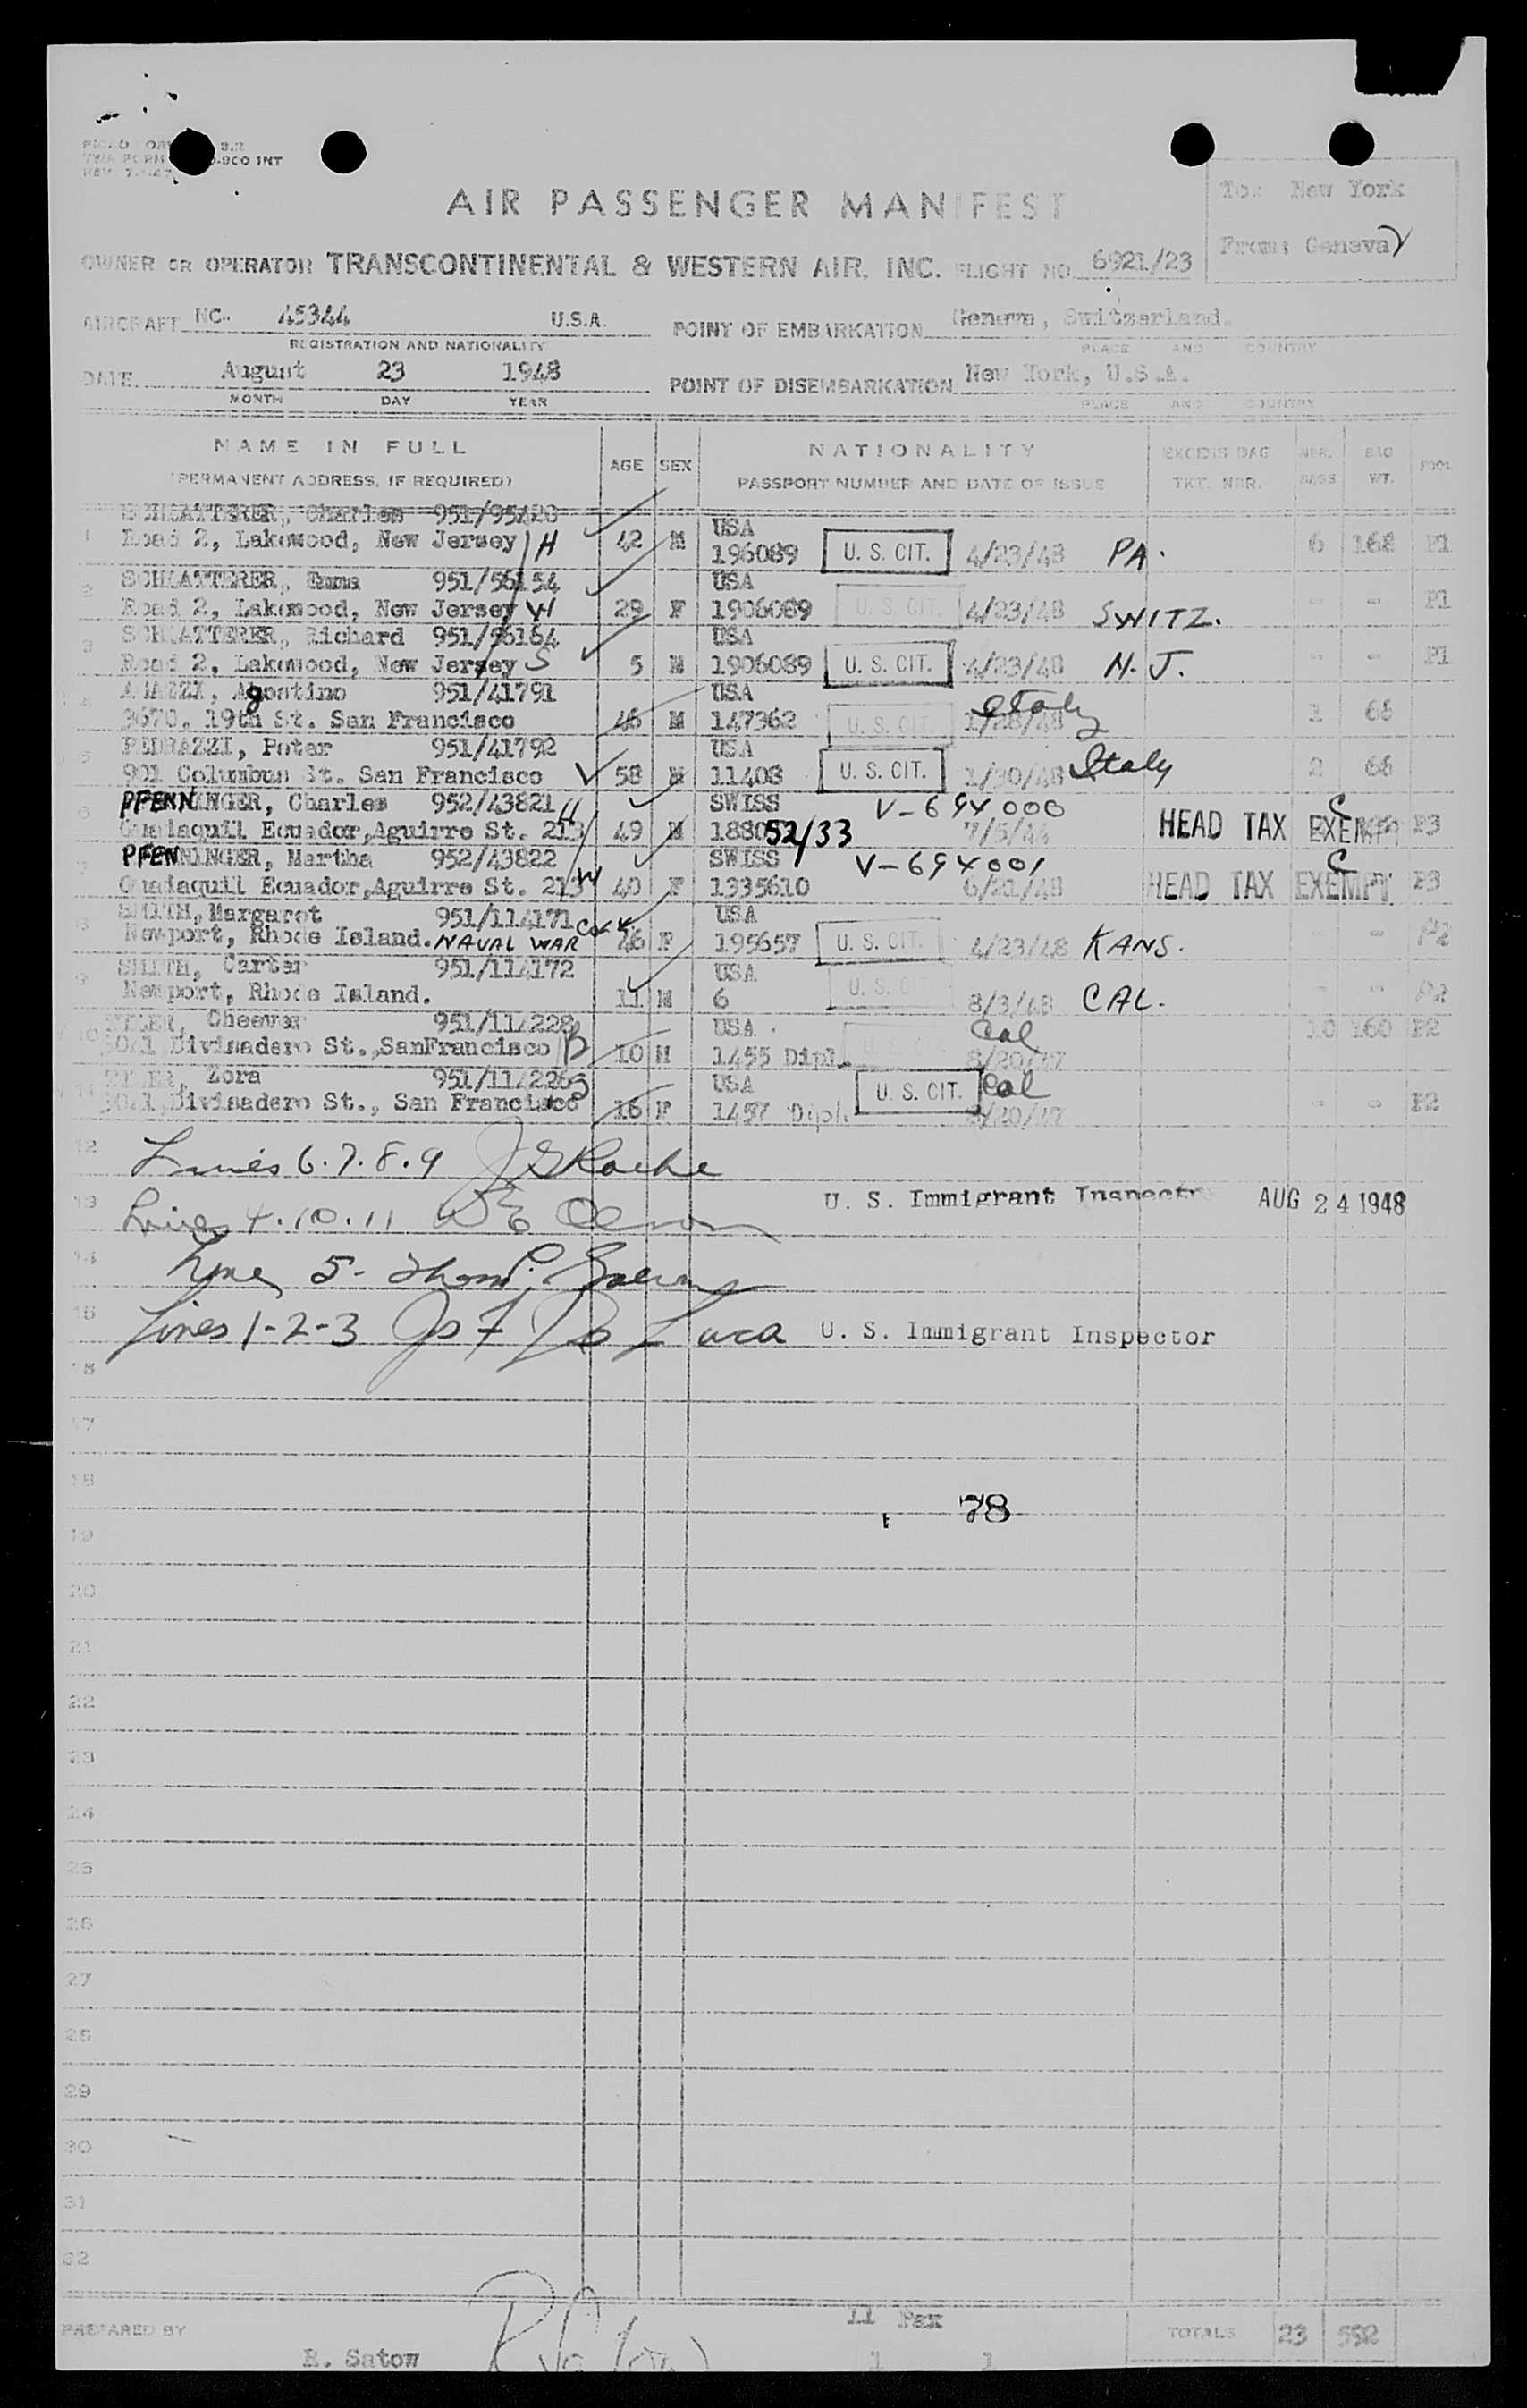 -900 INT
AIR PASSENGER MANIFEST
To: New York
From: Geneva
OWNER OR OPERATOR TRANSCONTINENTAL & WESTERN AIR, INC. FLIGHT NO. 6921/23
AIRCRAFT NC- 45344 U.S.A. POINT OF EMBARKATION Geneva, Switzerland.
REGISTRATION AND NATIONALITY PLACE AND COUNTRY
DATE August 23 1948 POINT OF DISEMBARKATION New York, U.S.A.
MONTH DAY YEAR PLACE AND COUNTRY
NAME IN FULL AGE SEX NATIONALITY EXCESS BAG NBR. BAG POOL
(PERMANENT ADDRESS, IF REQUIRED) PASSPORT NUMBER AND DATE OF ISSUE TKT. NBR. BAGS WT.
SCHLATTERER, Charles 951/95420 USA
1 Road 2, Lakewood, New Jersey H 42 M 196089 U. S. CIT. 4/23/48 PA. 6 168 P1
SCHLATTERER, Emma 951/56154 USA
2 Road 2, Lakewood, New Jersey W 29 F 1906089 U. S. CIT. 4/23/48 SWITZ. - - P1
SCHLATTERER, Richard 951/56164 USA
3 Road 2, Lakewood, New Jersey S 5 M 1906089 U. S. CIT. 4/23/48 N. J. - - P1
Agostino 951/41791 USA Italy
3670, 19th St. San Francisco 46 M 147362 U. S. CIT. 1/28/48 1 66
PEDRAZZI, Peter 951/41792 USA
5 901 Columbus St. San Francisco 58 M 11408 U. S. CIT. 1/30/48 Italy 2 66
PFENNINGER, Charles 952/43821 H SWISS V-694000 C
6 Guaiaquil Ecuador, Aguirre St. 213 49 M 1880 52/33 7/5/44 HEAD TAX EXEMPT P3
PFENNINGER, Martha 952/43822 SWISS V-694001 C
7 Guaiaquil Ecuador, Aguirre St. 213 W 40 F 1335610 6/21/48 HEAD TAX EXEMPT P3
SMITH, Margaret 951/114171 USA
8 Newport, Rhode Island. NAVAL WAR 46 F 195657 U. S. CIT. 4/23/48 KANS. - - P2
SMITH, Carter 951/114172 USA
9 Newport, Rhode Island. 11 M 6 U. S. C 8/3/48 CAL. - - P2
Cheever 951/114228 USA Cal
10 Divisadero St., SanFrancisco B 10 M 1455 Dipl. 8/20/47 10 160 P2
Zora 951/114226 USA Cal
11 Divisadero St., San Francisco S 16 F 1457 Dipl. U. S. CIT. 8/20/47 - - P2
12 Lines 6.7.8.9
13 Lines 4.10.11 U. S. Immigrant Inspector AUG 24 1948
14 Line 5-
15 Lines 1-2-3 Jos F De Luca U. S. Immigrant Inspector
16
17
18
78
19
20
21
22
23
24
25
26
27
28
29
30
31
32
11 Pax
PREPARED BY R. Satow TOTALS 23 552
1 1